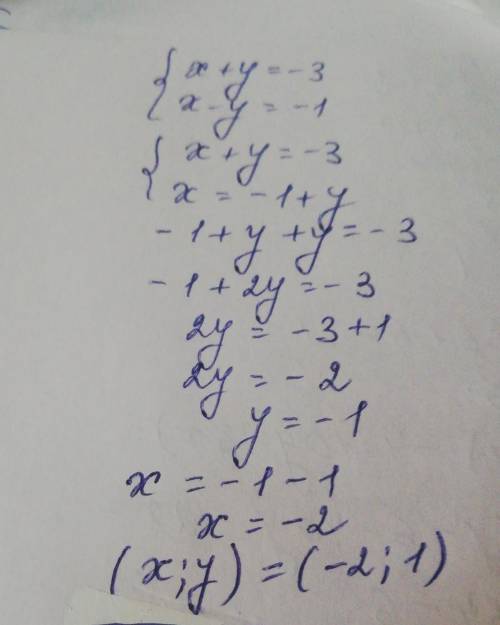 { x + y = -3
x - y = -1
{ x + y = -3
x = -1 + y
-1 + y + y = -3
-1 + 2y = -3
2y = -3 + 1
2y = -2
y = -1
x = -1 - 1
x = -2
(x; y) = (-2; 1)